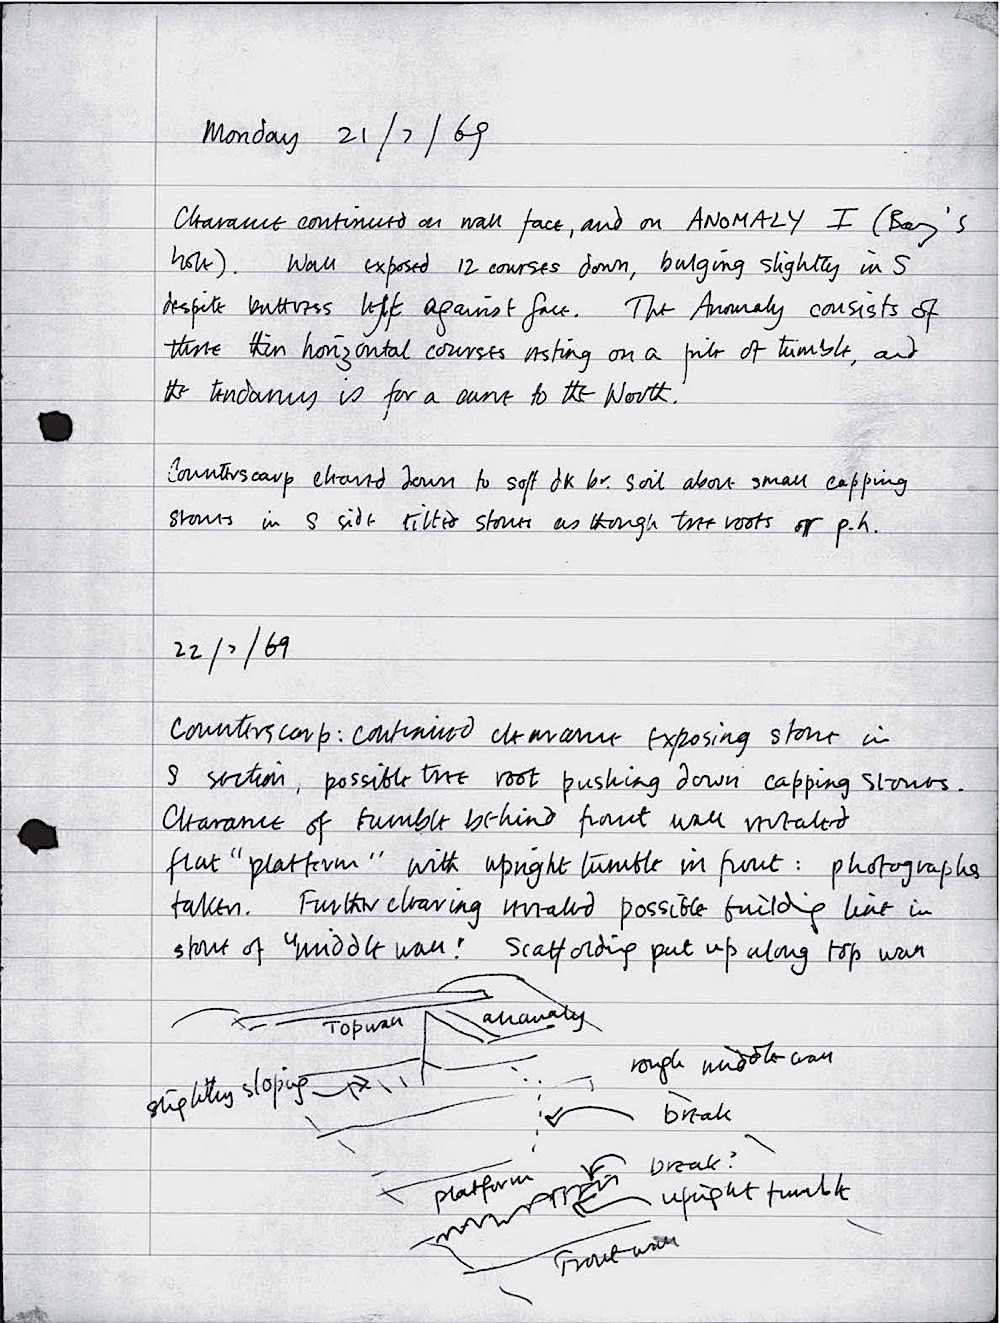 Monday 21/7/69
Clearance continued on wall face, and on ANOMALY I (Barry's
hole). Wall exposed 12 courses down, bulging slightly in S
despite buttress left against face. The Anomaly consists of
three thin horizontal courses resting on a pile of tumble, and
the tendancy is for a curve to the North.
Counterscarp cleared down to soft dk br. soil above small capping
stones in S side tilted stones as though tree roots or p.h.
22/7/69
Counterscarp: continued clearance exposing stone in
S section, possible tree root pushing down capping stones.
Clearance of tumble behind front wall revealed
flat "platform" with upright tumble in front: photographs
taken. Further clearing revealed possible building line in
stone of "middle wall! Scaffolding put up along top wall
Topwall
anomaly
rough middle wall
slightly sloping
break
break?
platform
upright tumble
Front wall